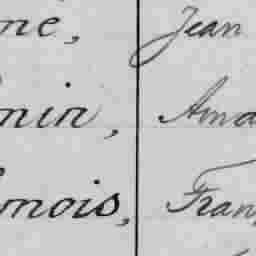 ne, Jean
min, Ama
mois, Fran